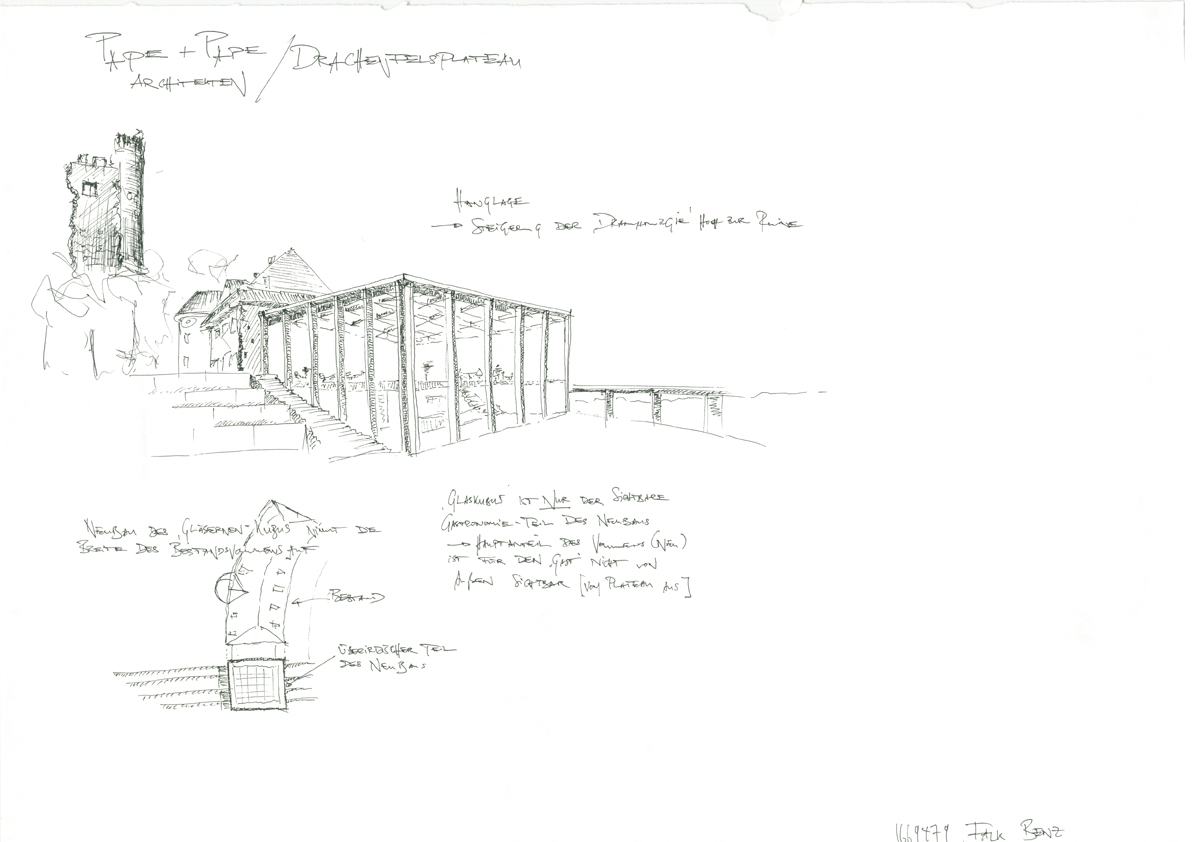 PAPE + PAPE / DRACHENFELSPLATEAU
ARCHITEKTEN
HANGLAGE
→ STEIGERUNG DER 'DRAMATURGIE' HOCH ZUR RUINE
NEUBAU DES 'GLÄSERNEN-KUBUS' NIMMT DIE
BREITE DES BESTANDSVOLUMENS AUF
'GLASKUBUS' IST NUR DER SICHTBARE
GASTRONOMIE-TEIL DES NEUBAUS
→ HAUPTANTEIL DES VOLUMENS (NEU)
IST FÜR DEN 'GAST' NICHT VON
AUßEN SICHTBAR [VOM PLATEAU AUS]
← BESTAND
ÜBERIRDISCHER TEIL
DES NEUBAUS
1669479 FALK BENZ